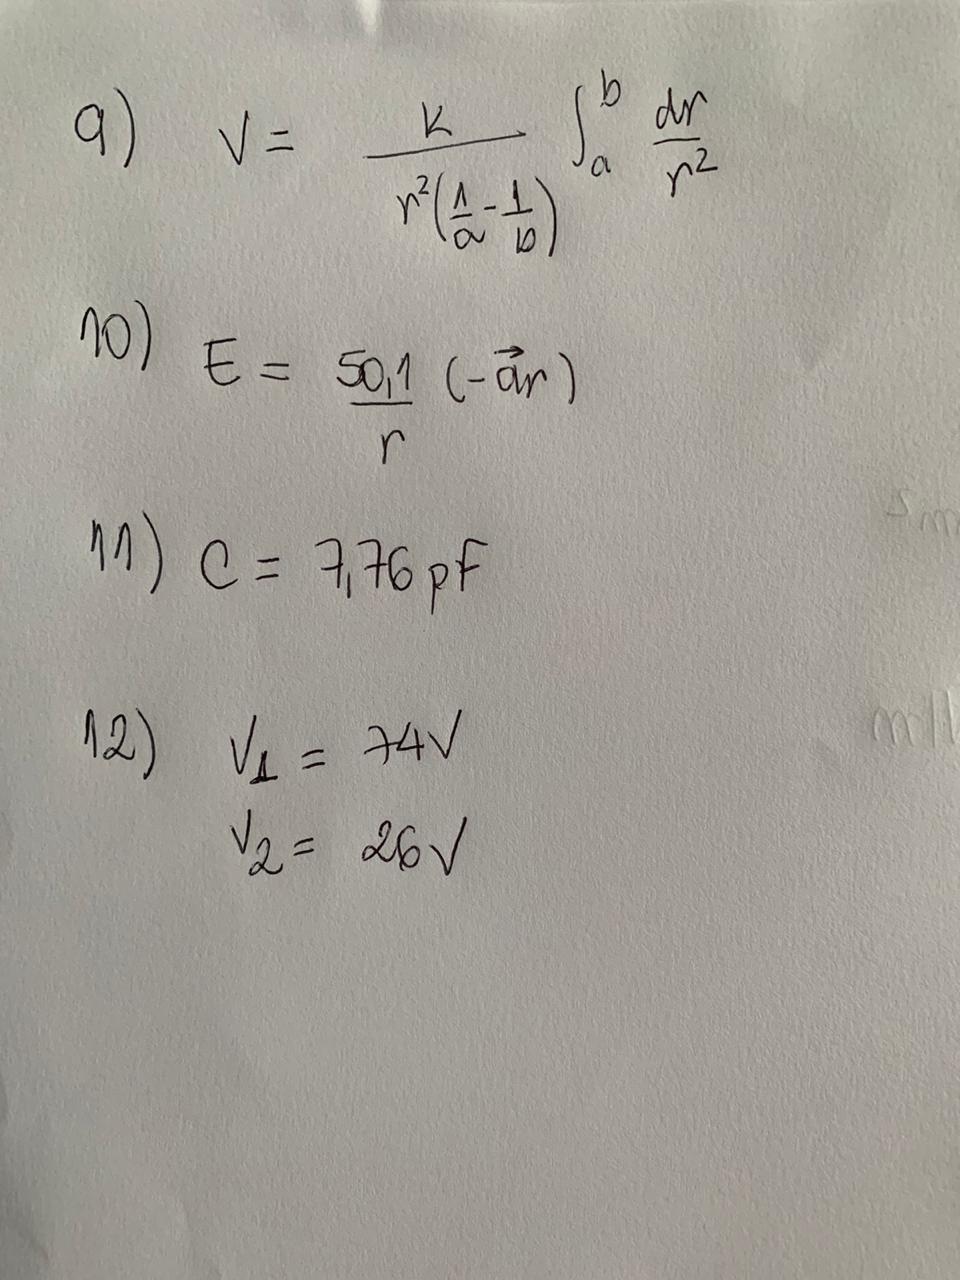 9) V = K / r²(1/a - 1/b) ∫ₐᵇ dr/r²
10) E = 50,1/r (-a⃗r)
11) C = 7,76 pF
12) V₁ = 74V
V₂ = 26V